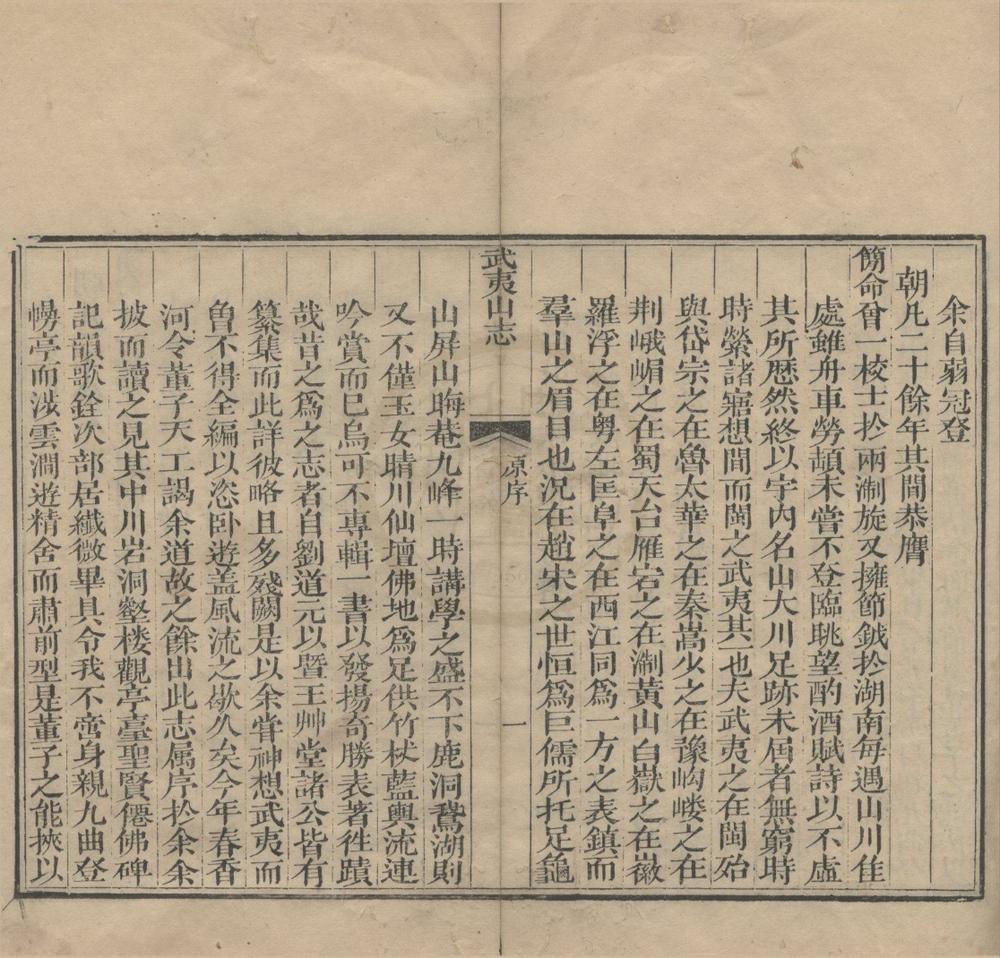 余自弱冠登
朝凡二十餘年其間恭膺
簡命曾一校士扵兩淛旋又擁節鉞扵湖南每遇山川佳
處雖舟車勞頓未嘗不登臨眺望酌酒賦詩以不虛
其所歷然終以宇內名山大川足跡未屆者無窮時
時縈諸寤想間而閩之武夷其一也夫武夷之在閩殆
與岱宗之在魯太華之在秦嵩少之在豫岣嶁之在
荆峨嵋之在蜀天台雁宕之在淛黃山白嶽之在徽
羅浮之在粤左匡阜之在西江同爲一方之表鎮而
羣山之眉目也況在趙宋之世恒爲巨儒所托足龜
武夷山志
原序
一
山屏山晦菴九峰一時講學之盛不下鹿洞鵞湖則
又不僅玉女晴川仙壇佛地爲足供竹杖藍輿流連
吟賞而已烏可不專輯一書以發揚奇勝表著徃蹟
哉昔之爲之志者自劉道元以暨王艸堂諸公皆有
纂集而此詳彼略且多殘闕是以余甞神想武夷而
魯不得全編以恣卧遊盖風流之歇久矣今年春香
河令董子天工謁余道故之餘出此志属序扵余余
披而讀之見其中川岩洞壑楼觀亭臺聖賢僊佛碑
記韻歌銓次部居纖微畢具令我不啻身親九曲登
幔亭而泛雲澗遊精舍而肅前型是董子之能挾以